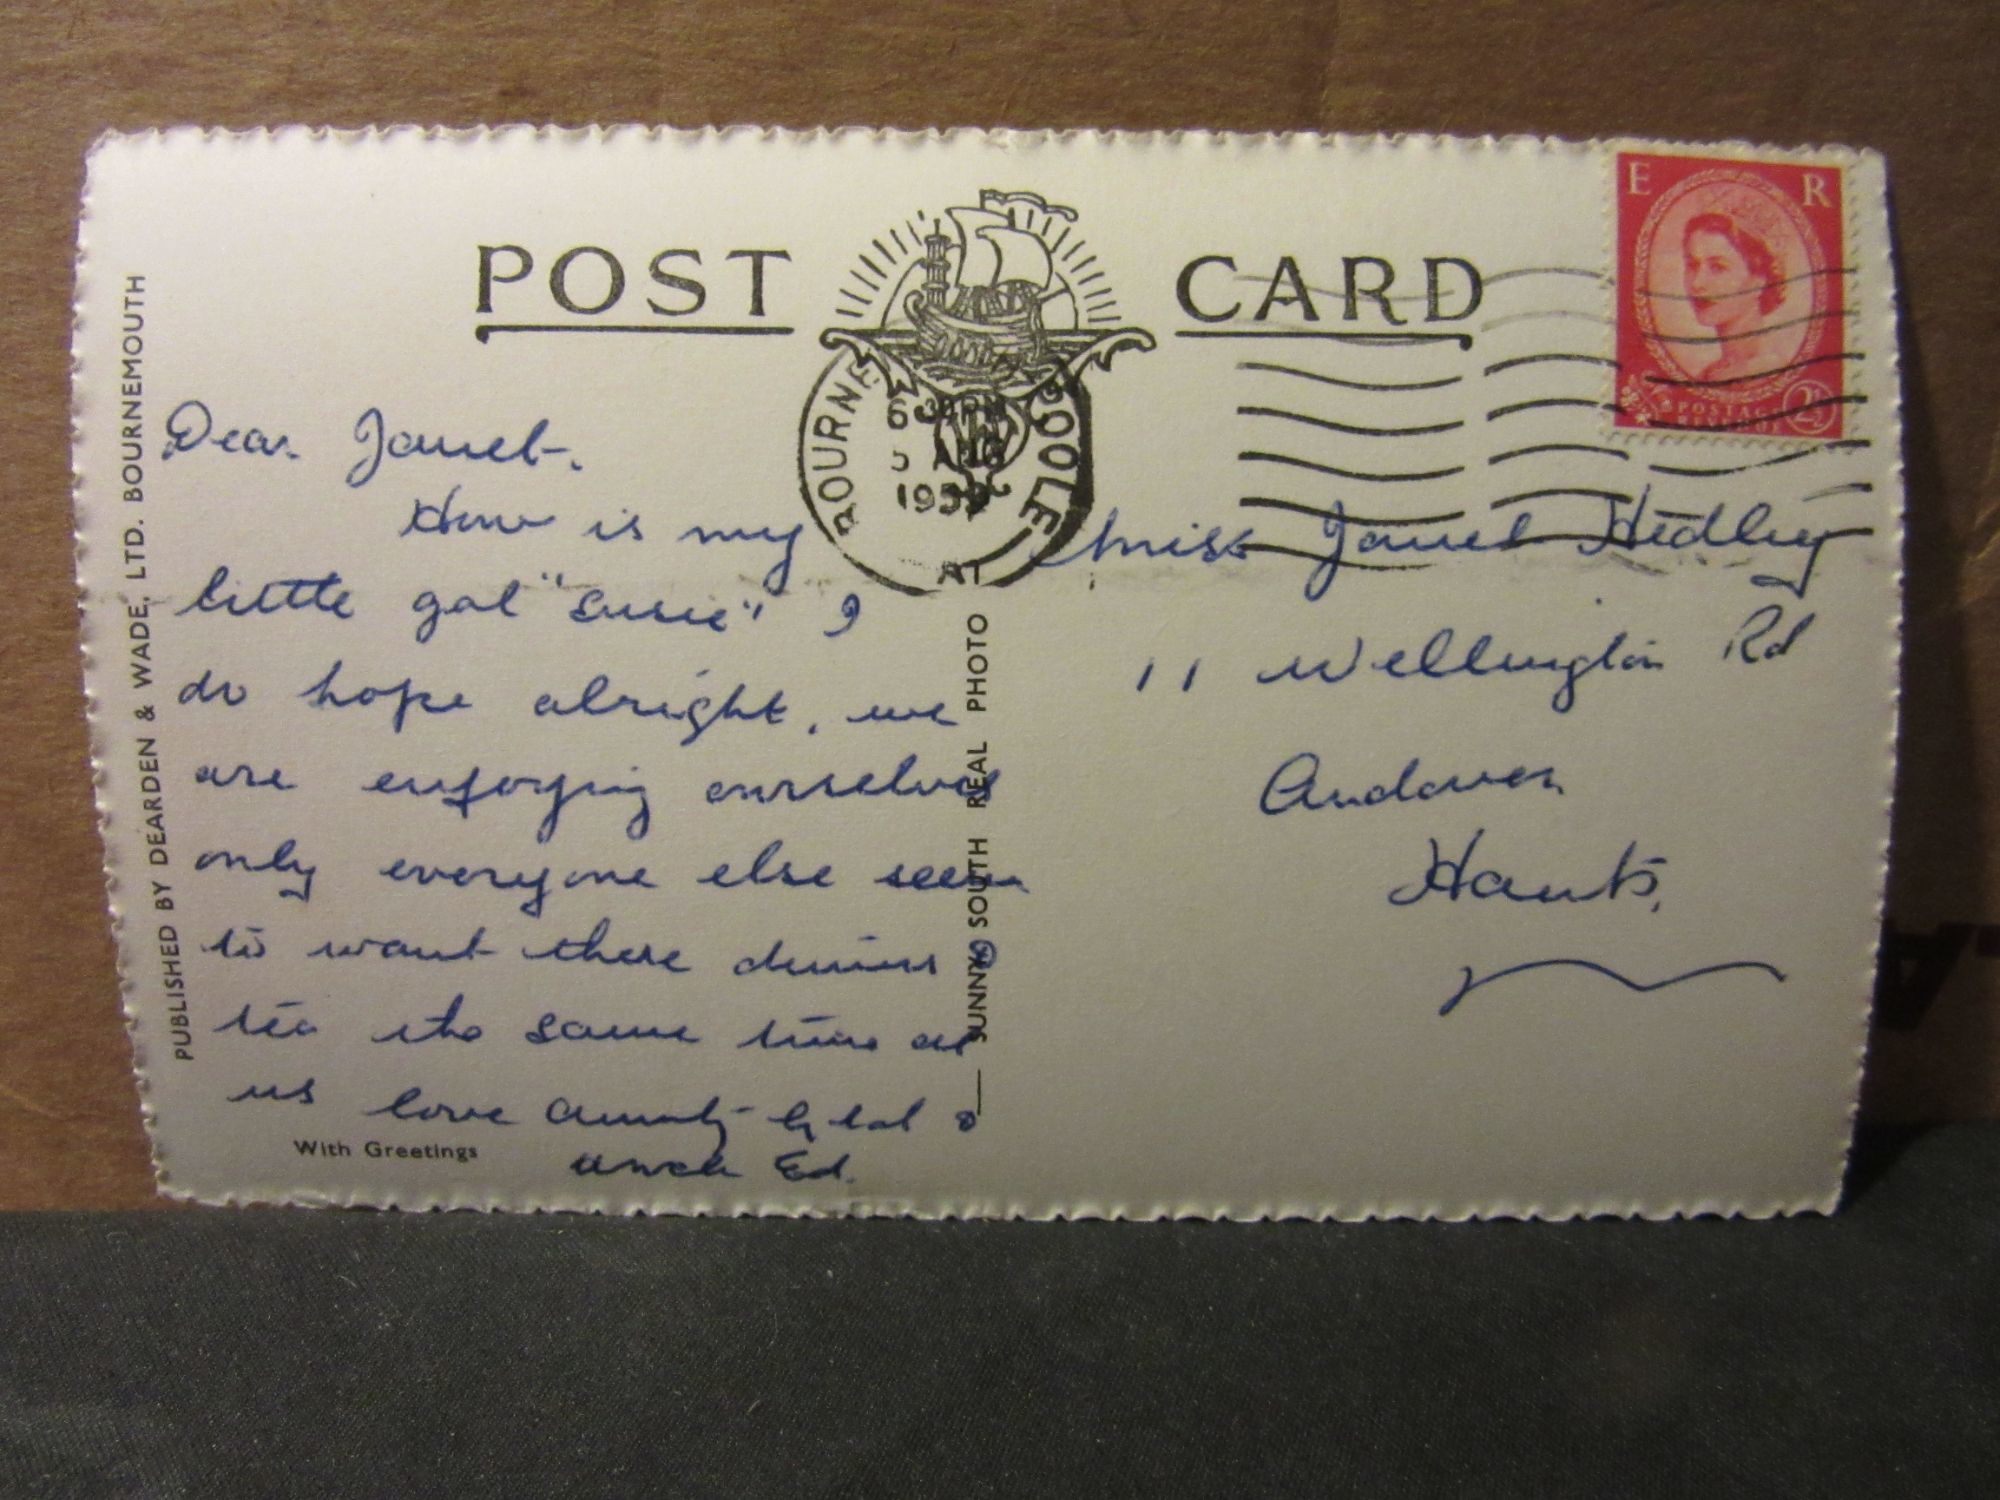 POST CARD
E R
POSTAGE REVENUE 2½D
BOURNEMOUTH POOLE
6 30 PM
5 AUG
195
PUBLISHED BY DEARDEN & WADE, LTD. BOURNEMOUTH
SUNNY SOUTH REAL PHOTO
Dear Janet.
How is my
little gal "Susie" I
do hope alright, we
are enjoying ourselves
only everyone else seem
to want there dinner &
tea the same time as
us love Aunty Glad &
Uncle Ed.
With Greetings
Miss Janet Hedley
11 Wellington Rd
Andover
Hants,